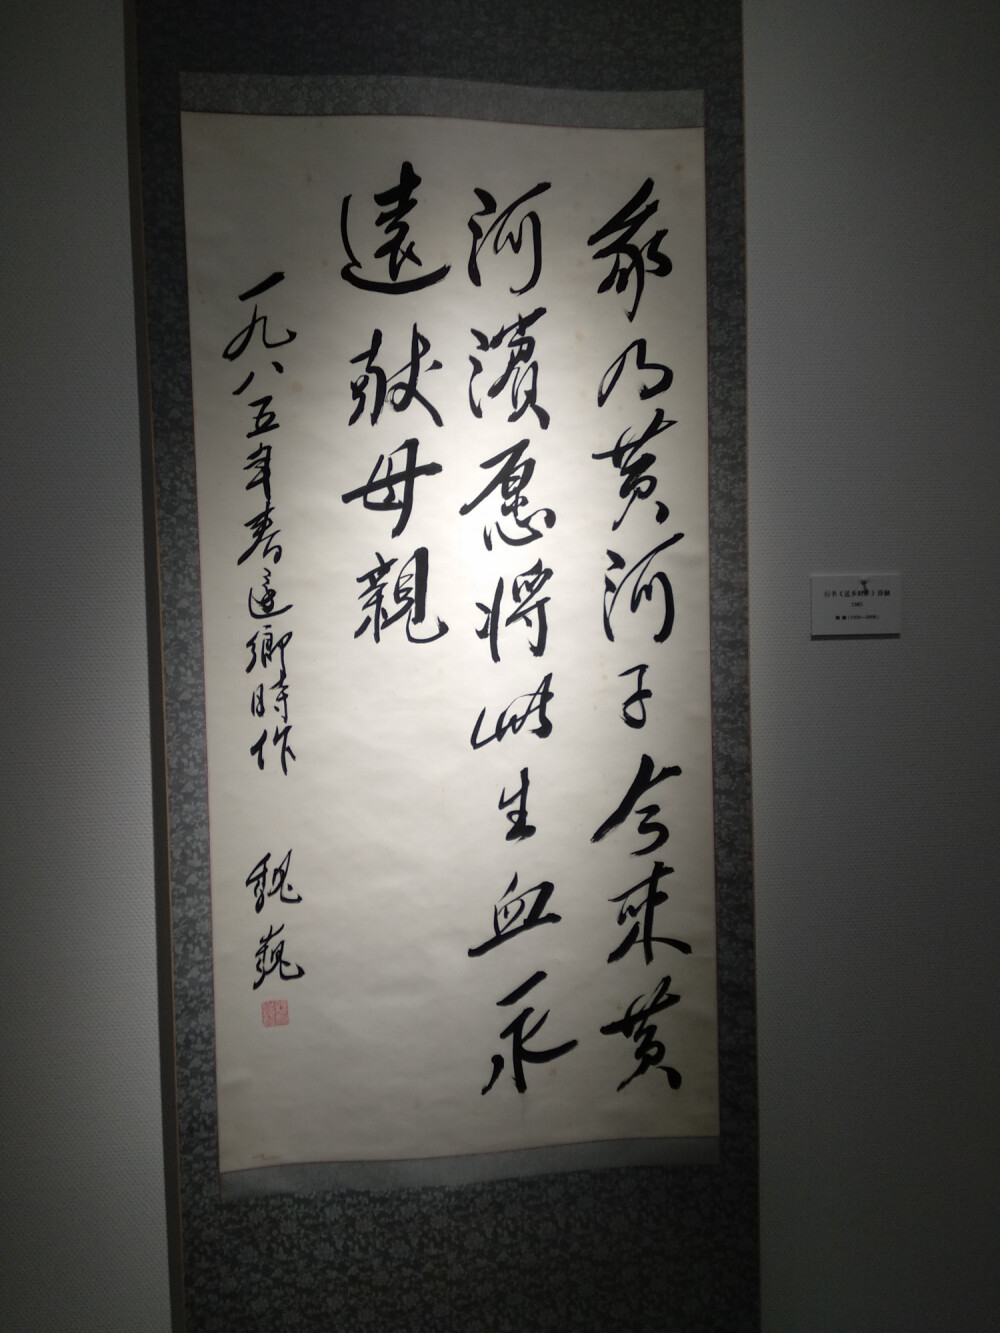 我乃黄河子今来黄
河濱愿将此生血永
遠献母親
一九八五年春返鄉時作 魏巍
1985
魏巍（1920—2008）